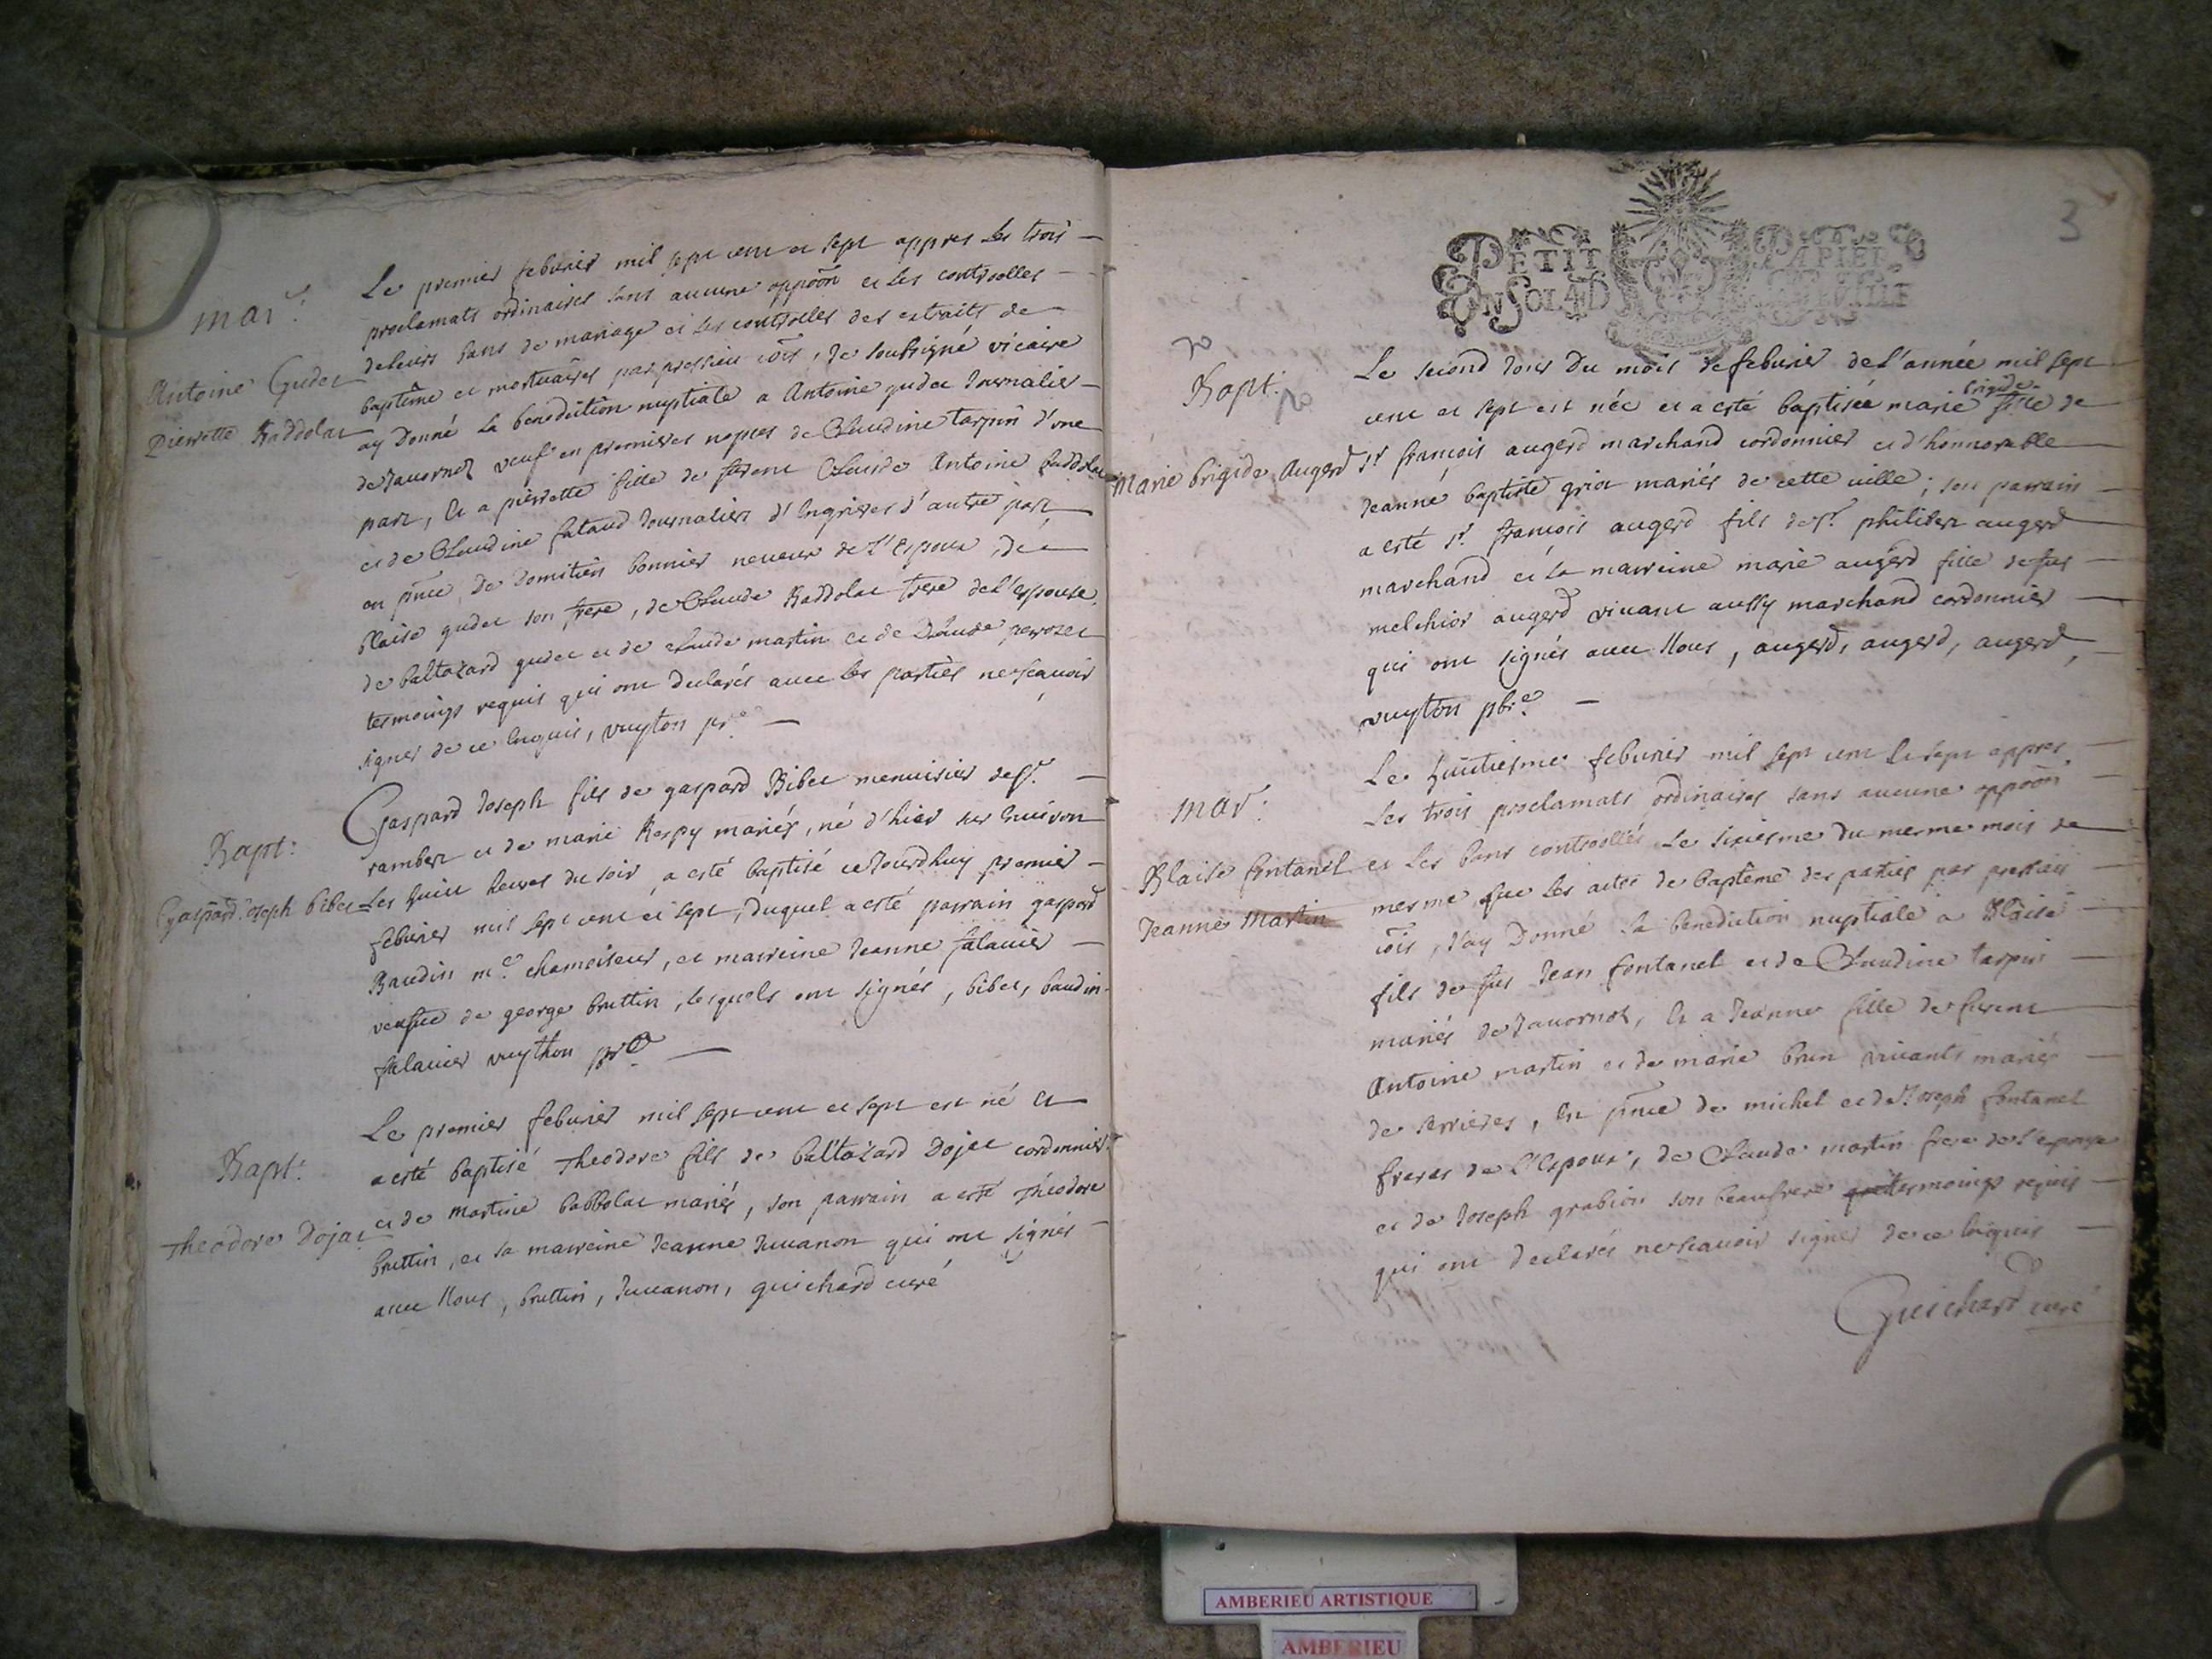 Mar:
Antoine Gudet
Pierrette Raddolat
Le premier feburier mil sept cent et sept appres les trois
proclamats ordinaires sans aucune oppoōn et les controlles
de leurs bans de mariage et les controlles des extraits de
baptême et mortuaires par pressieu cōis, Je soubsigné vicaire
ay donné la benediction nuptiale a Antoine gudet Journalier
de Javornoz veuf en premieres nopces de Claudine tarpin d'une
part, et a pierrette fille de furent Claude Antoine Raddolat
et de Claudine fataud Journaliers d'Ingrieres d'autre part
en pñce de Domitien bonnier neveux de l'Espoux, de
blaise gudet son frere, de Claude Raddolat frere de l'espouse,
de baltazard gudet et de claude martin et de Claude perozet
tesmoings requis qui ont declarés avec les parties ne scavoir
signer de ce Enquis, vuyton pre
Bapt:
Gaspard Joseph bibet
Gaspard Joseph fils de gaspard Bibet menuisier de st
rambert et de marie Respy mariés, né d'hier sur Environ
Les huict heures du soir, a esté baptisé ce Jourdhuy premier
feburier mil sept cent et sept, duquel a esté parrain gaspard
Baudin me chamoiseur, et marreine Jeanne falavier
veufue de george bruttin, lesquels ont signés, bibet, baudin,
falavier vuython pre
Bapt:
Theodore Dojat
Le premier feburier mil sept cent et sept est né et
a esté baptisé Theodore fils de baltazard Dojat cordonnier
et de Martine babbolat mariés, son parrain a esté Théodore
bruttin, et sa marreine Jeanne Juvanon qui ont signés
avec Nous, bruttin, Juvanon, guichard curé
3
PETIT PAPIER
EN SOL 4 D
Bapt:
Marie brigide Augerd
Le second Jour du mois de feburier de l'année mil sept
cent et sept est née et a esté baptisée marie brigide fille de
sr françois augerd marchand cordonnier et d'honnorable
Jeanne baptiste griot mariés de cette ville; son parrain
a esté sr françois augerd fils de sr philibert augerd
marchand et la marreine marie augerd fille de feu
melchior augerd vivant aussy marchand cordonnier
qui ont signés avec Nous, augerd, augerd, augerd,
vuyton pbre
Mar:
Blaise fontanel
Jeanne Martin
Le huitiesme feburier mil sept cent et sept appres
Les trois proclamats ordinaires sans aucune oppoōn
et les bans controllés le sixiesme du mesme mois de
mesme que les actes de baptême des parties par pressieu
cōis, J'ay Donné la benediction nuptiale a Blaise
fils de feu Jean fontanel et de Claudine tarpin
mariés de Javornoz, et a Jeanne fille de furent
Antoine martin et de marie brun vivants mariés
de serrieres, en pñce de michel et de Joseph fontanel
freres de l'Espoux, de Claude martin frere de l'epouse
et de Joseph grabion son beaufrere tesmoings requis
qui ont declarés ne scavoir signer de ce Enquis
Guichard curé
AMBERIEU ARTISTIQUE
AMBERIEU